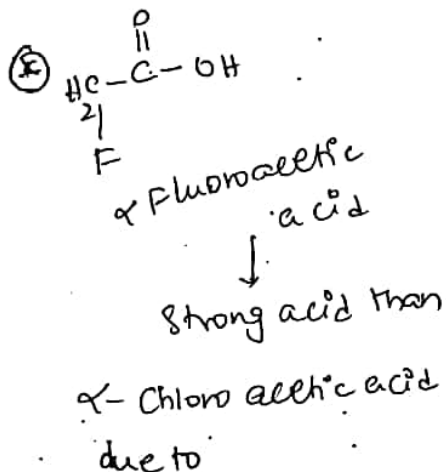 O
HC - C - OH
2
F
α Fluoroacetic
acid
Strong acid than
α- Chloro acetic acid
due to